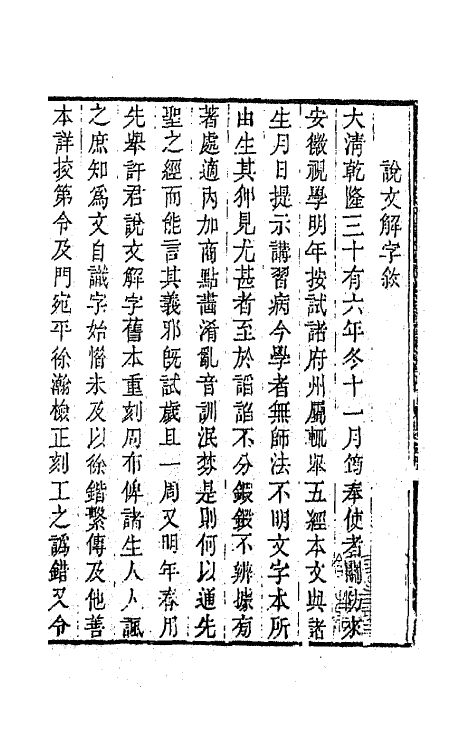 說文解字敘
大清乾隆三十有六年冬十一月筠奉使者關防來
安徽視學明年按試諸府州屬輒舉五經本文與諸
生月日提示講習病今學者無師法不明文字本所
由生其狃見尤甚者至於謟諂不分鍛鍜不辨據旁
著處適內加商點畵淆亂音訓泯棼是則何以通先
聖之經而能言其義邪旣試歲且一周又明年春用
先舉許君說文解字舊本重刻周布俾諸生人人諷
之庶知爲文自識字始惜未及以徐鍇繫傳及他善
本詳挍第令及門宛平徐瀚檢正刻工之譌錯又令